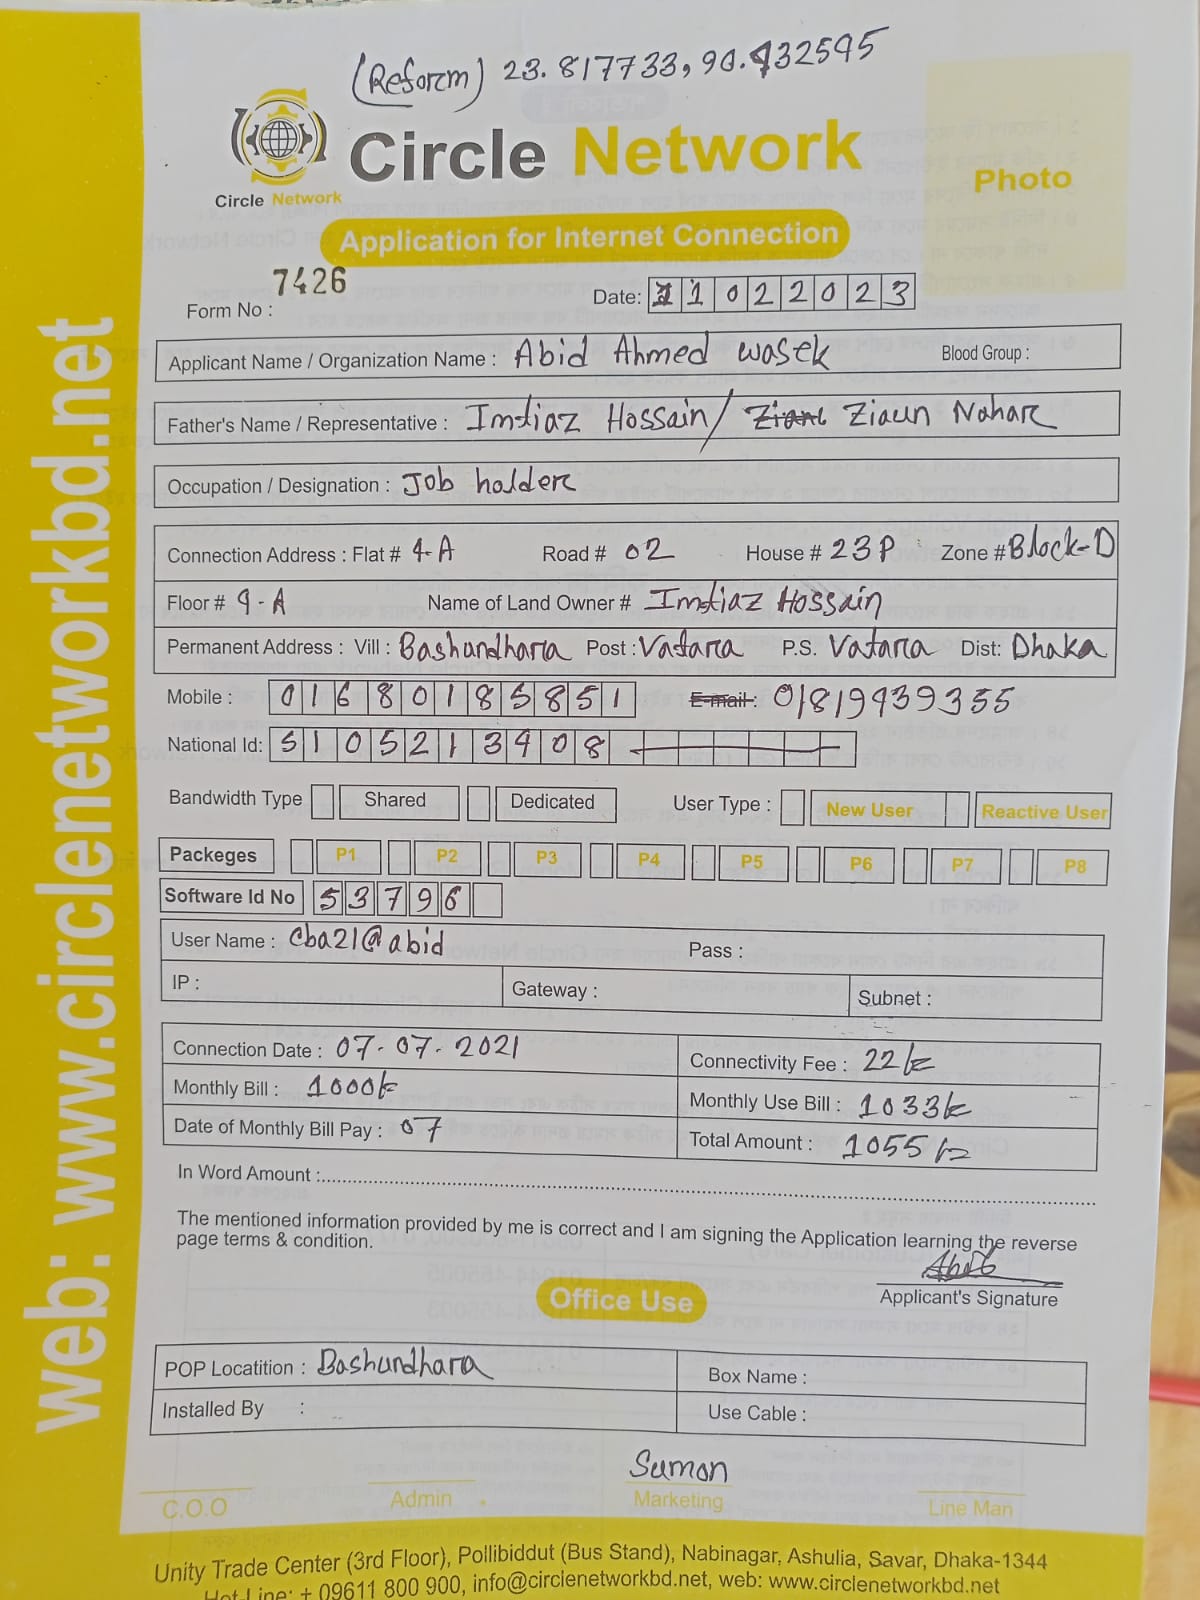 (Reform) 23.817733, 90.432595
Circle Network
Circle Network
Photo
Application for Internet Connection
Form No : 7426
Date: 11022023
Applicant Name / Organization Name : Abid Ahmed wasek Blood Group :
Father's Name / Representative : Imtiaz Hossain/ Ziaun Nahar
Occupation / Designation : Job holder
Connection Address : Flat # 4-A Road # 02 House # 23P Zone # Block-D
Floor # 4-A Name of Land Owner # Imtiaz Hossain
Permanent Address : Vill : Bashundhara Post : Vatara P.S. Vatara Dist: Dhaka
Mobile : 01680185851 E-mail : 01819439355
National Id: 5105213408
Bandwidth Type Shared Dedicated User Type : New User Reactive User
Packeges P1 P2 P3 P4 P5 P6 P7 P8
Software Id No 53796
User Name : cba21@abid Pass :
IP : Gateway : Subnet :
Connection Date : 07-07-2021 Connectivity Fee : 22/=
Monthly Bill : 1000/= Monthly Use Bill : 1033/=
Date of Monthly Bill Pay : 07 Total Amount : 1055/=
In Word Amount :
The mentioned information provided by me is correct and I am signing the Application learning the reverse
page terms & condition.
Applicant's Signature
Office Use
POP Locatition : Bashundhara Box Name :
Installed By : Use Cable :
Sumon
C.O.O Admin Marketing Line Man
Unity Trade Center (3rd Floor), Pollibiddut (Bus Stand), Nabinagar, Ashulia, Savar, Dhaka-1344
Hot-Line: + 09611 800 900, info@circlenetworkbd.net, web: www.circlenetworkbd.net
web: www.circlenetworkbd.net